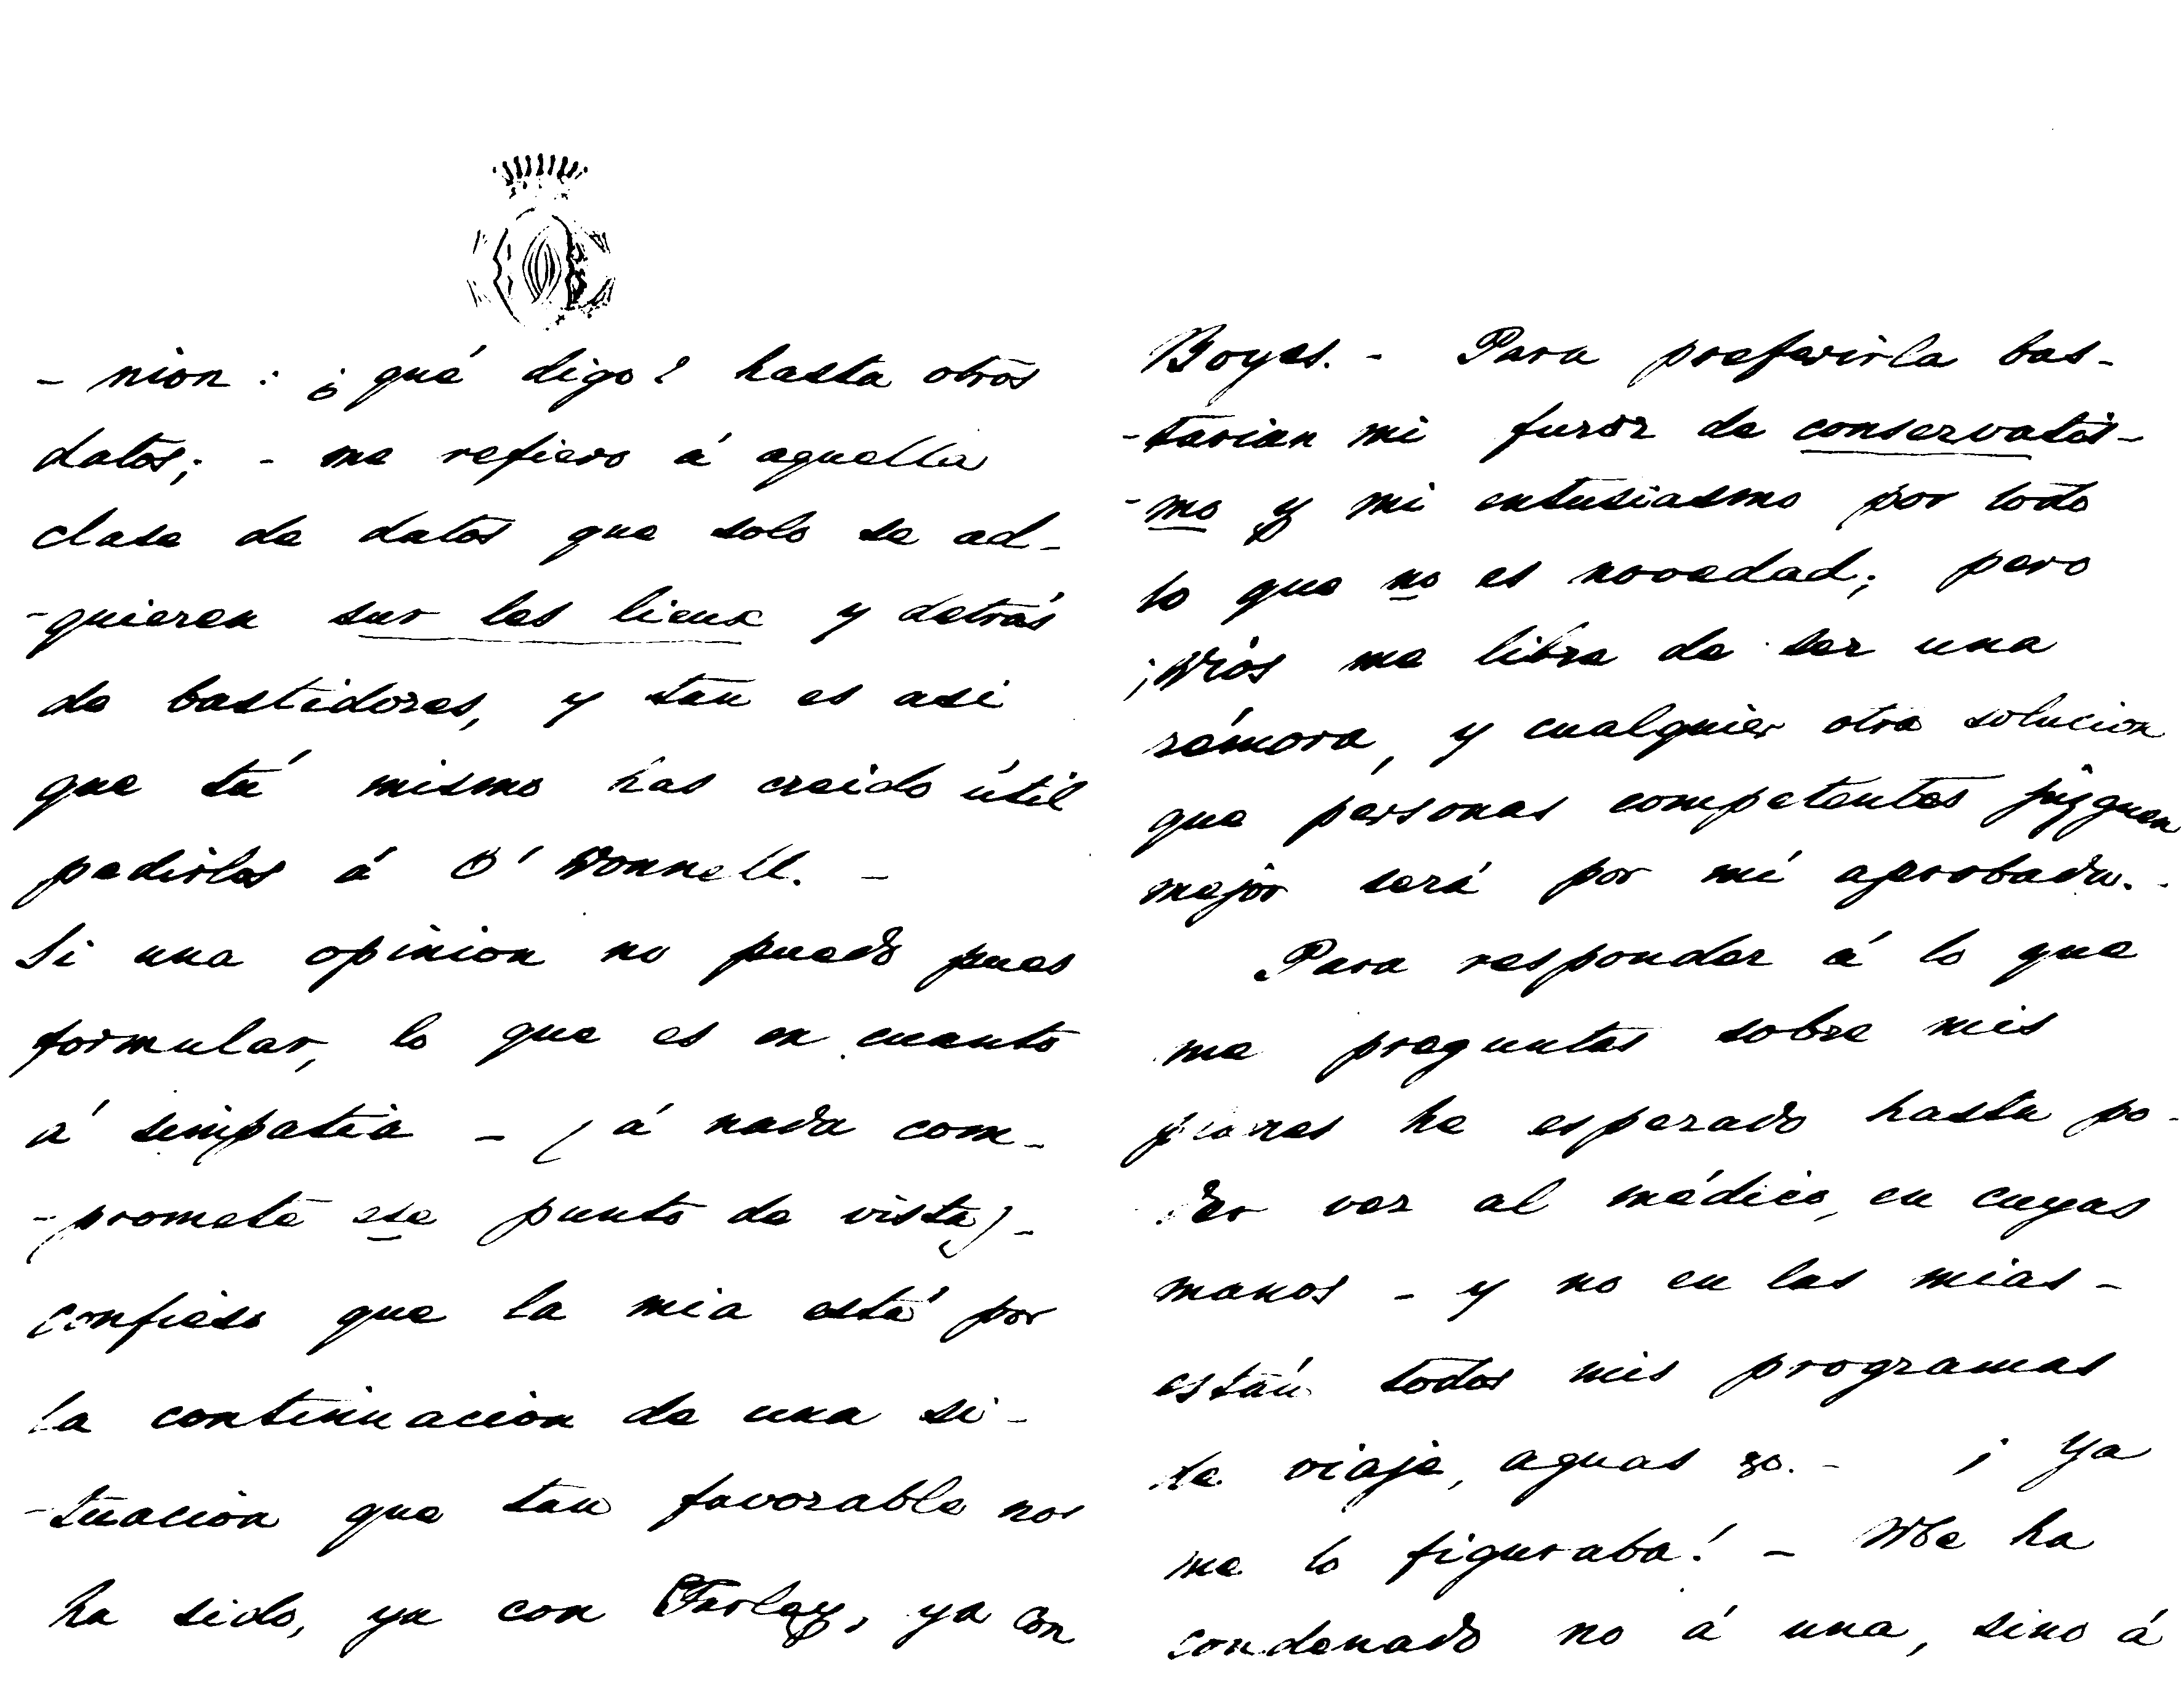 - nion: ¿qué digo? hasta otros
datos; - me refiero á aquella
clase de datos que solo se ad-
-quieren sur les lieux y detrás
de bastidores, y tan es asi
que tú mismo has creido útil
pedirlos á O'Donnell. -
Si una opinion no puedo pues
formular, lo que es en cuanto
á simpatia - (á nada com-
-promete ese punto de vista) -
confieso que la mia está por
la continuacion de una si-
-tuacion que tan favorable nos
ha sido, ya con Farley, ya con
Boyes. - Para preferirla bas-
-tarian mi furor de conservatis-
-mo y mi entusiasmo por todo
lo que no es novedad; pero
¡Dios me libre de ser una
rémora, y cualquier otra solucion
que personas competentes juzguen
mejor será por mí aprobada. -
Para responder á lo que
me preguntas sobre mis
planes he esperado hasta po-
der ver al médico, en cuyas
manos - y no en las mias -
están todos mis programas
de viaje, aguas &c. - ¡Ya
me lo figuraba! - Me ha
condenado no á una, sino á